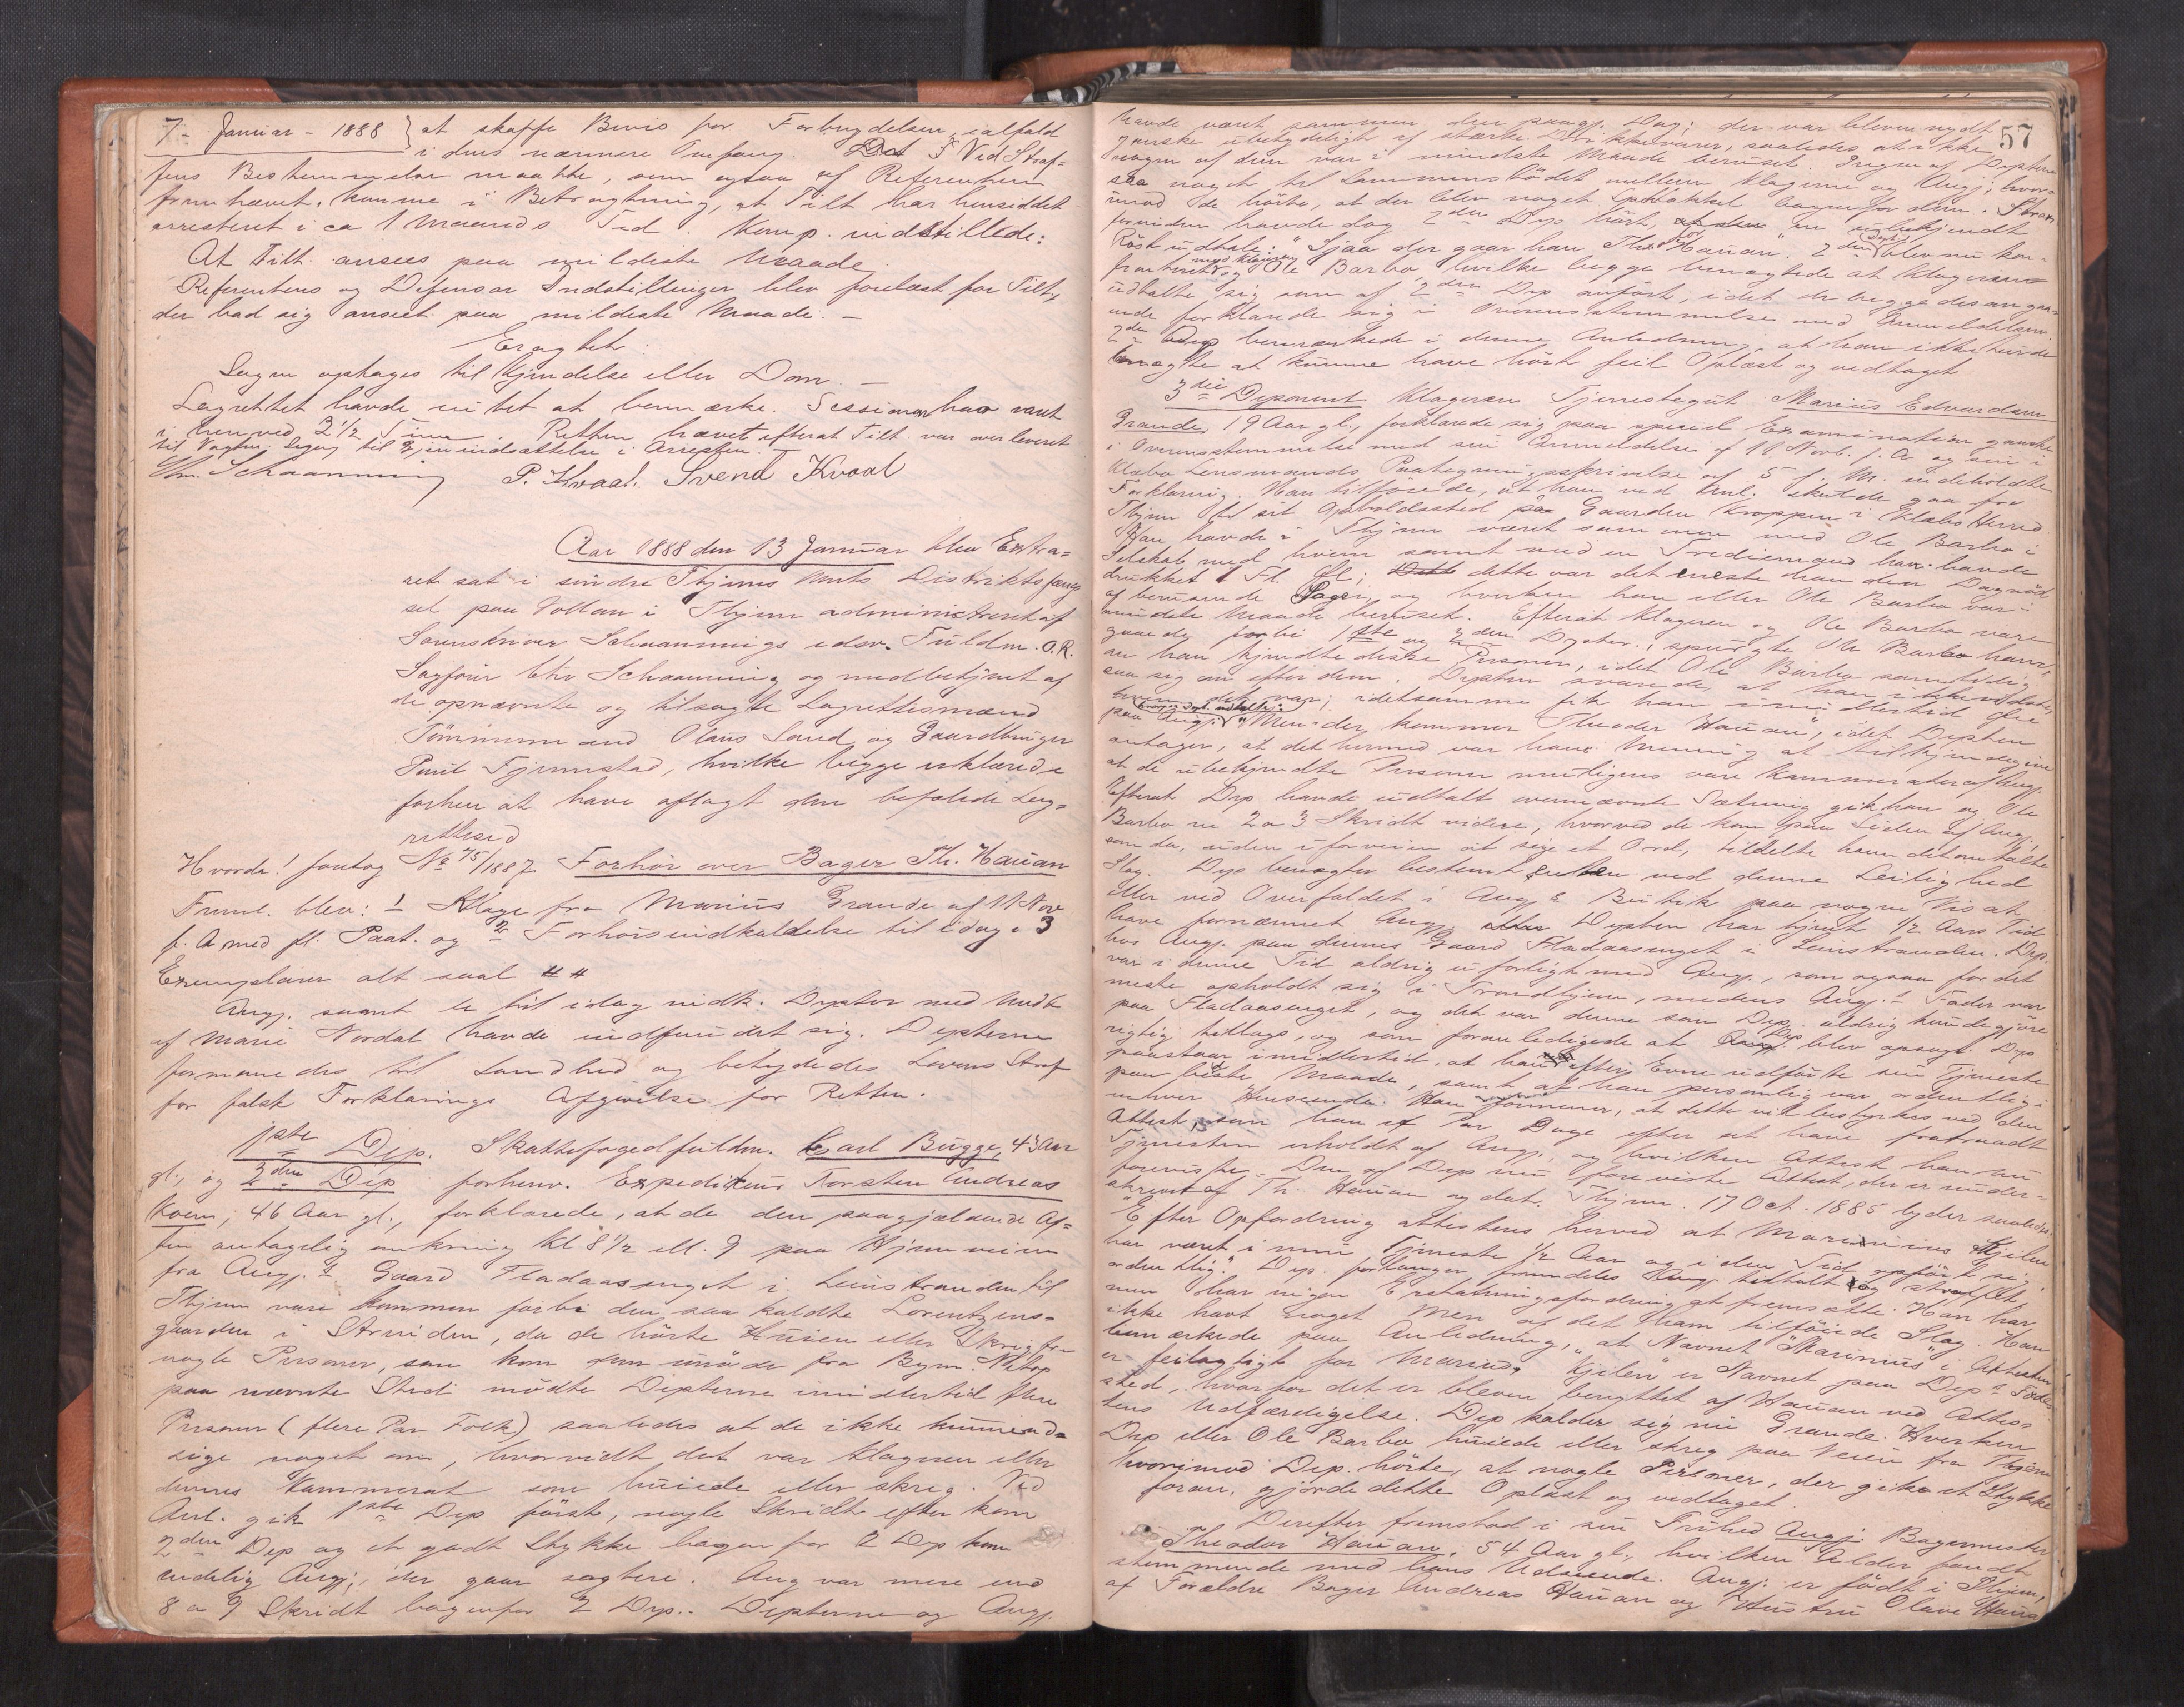 7- Januar - 1888 } at skaffe Bevis for Forbrydelsen, ialfald
i dens nærmere Omfang. Ved Straf-
fens Bestemmelse maatte, som ogsaa af Referenten
fremhævet, komme i Betragtning, at Tilt har hensiddet
arresteret i ca 1 Maaneds Tid. Komp. indstillede:
At Tilt. ansees paa mildeste Maade.
Referentens og Defensors Indstillinger blev forelæst for Tilt,
der bad sig anseet paa mildeste Maade. —
Eragtet:
Sagen optages til Kjendelse eller Dom. —
Lagrettet havde intet at bemærke. Sessionen har varet
i henved 2½ Time. Retten hævet efterat Tilt. var overleveret
til Vagten til Gjenindsættelse i Arresten.
Chr. Schaanning P. Kvaal. Svend Kvaal
Aar 1888 den 13 Januar blev Extra-
ret sat i søndre Thjems Amts Distriktsfæng-
sel paa Vollan i Thjem administreret af
Sorenskriver Schaannings edsv. Fuldm. O.R.
Sagfører Chr Schaanning og medbetjent af
de opnævnte og tilsagte Lagrettesmænd
Tømmermand Olaus Sand og Gaardbruger
Paul Fjermstad, hvilke begge erklærede
forhen at have aflagt den befalede Lag-
rettesed
Hvorda! foretog No 45/1887 Forhør over Bager Th. Hauan
Freml. blev: 1 Klage fra Marius Grande af 11 Nov
f. A med fl. Paat. og 2 Forhørsindkaldelse til idag i 3
Exemplarer alt saal # #
Angj. samt de hit idag indk. Deptor med Undt
af Marie Nordal havde indfundet sig. Depterne
formanedes til Sandhed og betydedes Lovens Straf
for falsk Forklarings Afgivelse for Retten.
1ste Dep. Skattefogedfuldm. Carl Bugge, 43 Aar
gl., og 2den Dep forhenv. Expediteur Torsten Andreas
Koren, 46 Aar gl., forklarede, at de den paagjældende Af-
ten antagelig omkring Kl 8½ ell. 9 paa Hjemveien
fra Angj.s Gaard Fladaasenget i Leinstranden til
Thjem vare kommen forbi den saa kaldte Lorentzens-
gaarden i Storeiden, da de hørte Huien eller Skrig fra
nogle Personer, som kom dem imøde fra Byen. Netop
paa nævnte Sted mødte Depterne imidlertid flere
Personer (flere Par Folk) saaledes at de ikke kunne ud-
sige noget om, hvorvidt det var Klageren eller
dennes Kammerat som huiede eller skreg. Ved
Anl. gik 1ste Dep først, nogle Skridt efter kom
2den Dep og et godt Stykke bagenfor 2 Dep kom
endelig Angj., der gaar sagtere. Ang var mere end
8 a 9 Skridt bagenfor 2 Dep.. Depterne og Angj.
57
havde været sammen den paagj. Dag; der var bleven nydt
ganske ubetydeligt af stærke Drikkevarer, saaledes at ikke
nogen af dem var i mindste Maade beruset. Ingen af Depterne
saa noget til Sammenstødet mellem Klageren og Angj; hvor-
imod de hørte, at der blev noget Spektakkel bagenfor dem. Strax
forinden havde dog 2den Dep hørt, en ubekjendt
Røst udtale: "Sjaa der gaar han Theodor Hauan". 2den Dep. blev nu kon-
fronteret med Klageren og Ole Barbo hvilke begge benægtede at Klageren
udtalte sig som af 2den Dep anført, idet de begge desangaa-
ende forklarede sig i Overensstemmelse med Anmeldelsen.
2den Dep bemærkede i denne Anledning, at han ikke turde
benægte at kunne have hørt feil Oplæst og vedtaget
3die Deponent Klageren Tjenestegut Marius Edvardsen
Grande, 19 Aar gl., forklarede sig paa speciel Examination ganske
i Overensstemmelse med sin Anmeldelse af 11 Novb. f. A og sin i
Klæbo Lensmands Paategningsskrivelse af 5 f. M. indeholdte
Forklaring. Han tilføiede, at han ved Anl. skulde gaa fra
Thjem til sit Opholdssted paa Gaarden Kroppen i Klæbo Herred
Han havde i Thjem været sammen med Ole Barbo i
Selskab med hvem samt med en Trediemand han havde
drukket 1 Fl Øl; dette var det eneste han den Dag nød
af berusende Sager, og hverken han eller Ole Barbo var i
mindste Maade beruset. Efterat Klageren og Ole Barbo vare
gaaede forbi 1ste og 2den Deptor, spurgte Ole Barbo ham,
om han kjendte disse Personer, idet Ole Barbo samtidig
saa sig om efter dem. Depten svarede, at han ikke vidste,
hvem det var; idetsamme fik han imidlertid Øie
paa Angj. hvorpaa Dept. udtalte: "Men der kommer Theodor Hauan", idet Depten
antager, at det hermed var hans Mening at tilkjendegive
at de ubekjendte Personer muligens vare Kammerater af Angj.
Efterat Dep havde udtalt ovennævnte Sætning gik han og Ole
Barbo en 2 a 3 Skridt videre, hvorved de kom paa Siden af Angj.
som da, uden i forveien at sige et Ord, tildelte ham det omtalte
Slag. Dep benægter bestemt enten ved denne Leilighed
eller ved Overfaldet i Angj.s Butik paa nogen Vis at
have fornærmet Angj. Depten har tjent ½ Aars Tid
hos Angj. paa dennes Gaard Fladaasenget i Leinstranden. Dep.
var i denne Tid aldrig uforligt med Angj., som ogsaa for det
meste opholdt sig i Trondhjem, medens Angj.s Fader var
paa Fladaasenget, og det var denne som Dep. aldrig kunde gjøre
rigtig tillags, og som foranledigede at Dep. blev opsagt. Dep
paastaar imidlertid, at han efter Evne udførte sin Tjeneste
paa bedste Maade, samt at han personlig var ordentlig i
enhver Henseende. Han formener, at dette vil bestyrkes ved den
Attest, som han et Par Dage efter at have fratraadt
Tjenesten erholdt af Angj., og hvilken Attest han nu
foreviste. Den af Dep nu foreviste Attest, der er under-
skrevet af Th. Hauan og dat. Thjem 17 Oct. 1885 lyder saaledes:
"Efter Opfordring attesteres herved at Marinius Kjelen
har været i min Tjeneste ½ Aar og i den Tid opført sig
ordentlig." Dep. forlanger fremdeles Angj. tiltalt og straffet
men har ingen Erstatningsfordring at fremsætte. Han har
ikke havt noget Men af det ham tilføiede Slag. Han
bemærkede paa Anledning, at Navnet "Marinius" i Attesten
er feilagtigt for Marius. "Kjelen" er Navnet paa Dep.s Føde-
sted, hvorfor det er bleven benyttet af Hauan ved Attes-
tens Udfærdigelse. Dep kalder sig nu Grande. Hverken
Dep eller Ole Barbo huiede eller skreg paa Veien fra Thjem
hvorimod Dep. hørte, at nogle Personer, der gik et Stykke
foran, gjorde dette Oplæst og vedtaget.
Derefter fremstod i sin Frihed Angj. Bagermester
Theodor Hauan, 54 Aar gl., hvilken Alder fandt
stemmende med hans Udseende. Angj. er født i Thjem,
af Forældre Bager Andreas Hauan og Hustru Olave Haua